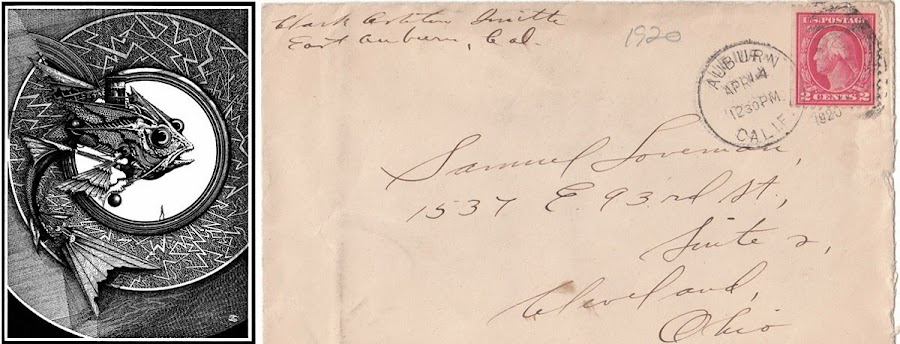 Clark Ashton Smith
East Auburn, Cal.
1920
U.S. POSTAGE
2 CENTS 2
AUBURN
APR 4
1230 PM
CALIF.
1920
Samuel Loveman,
1537 E. 93rd St.,
Suite 2,
Cleveland,
Ohio